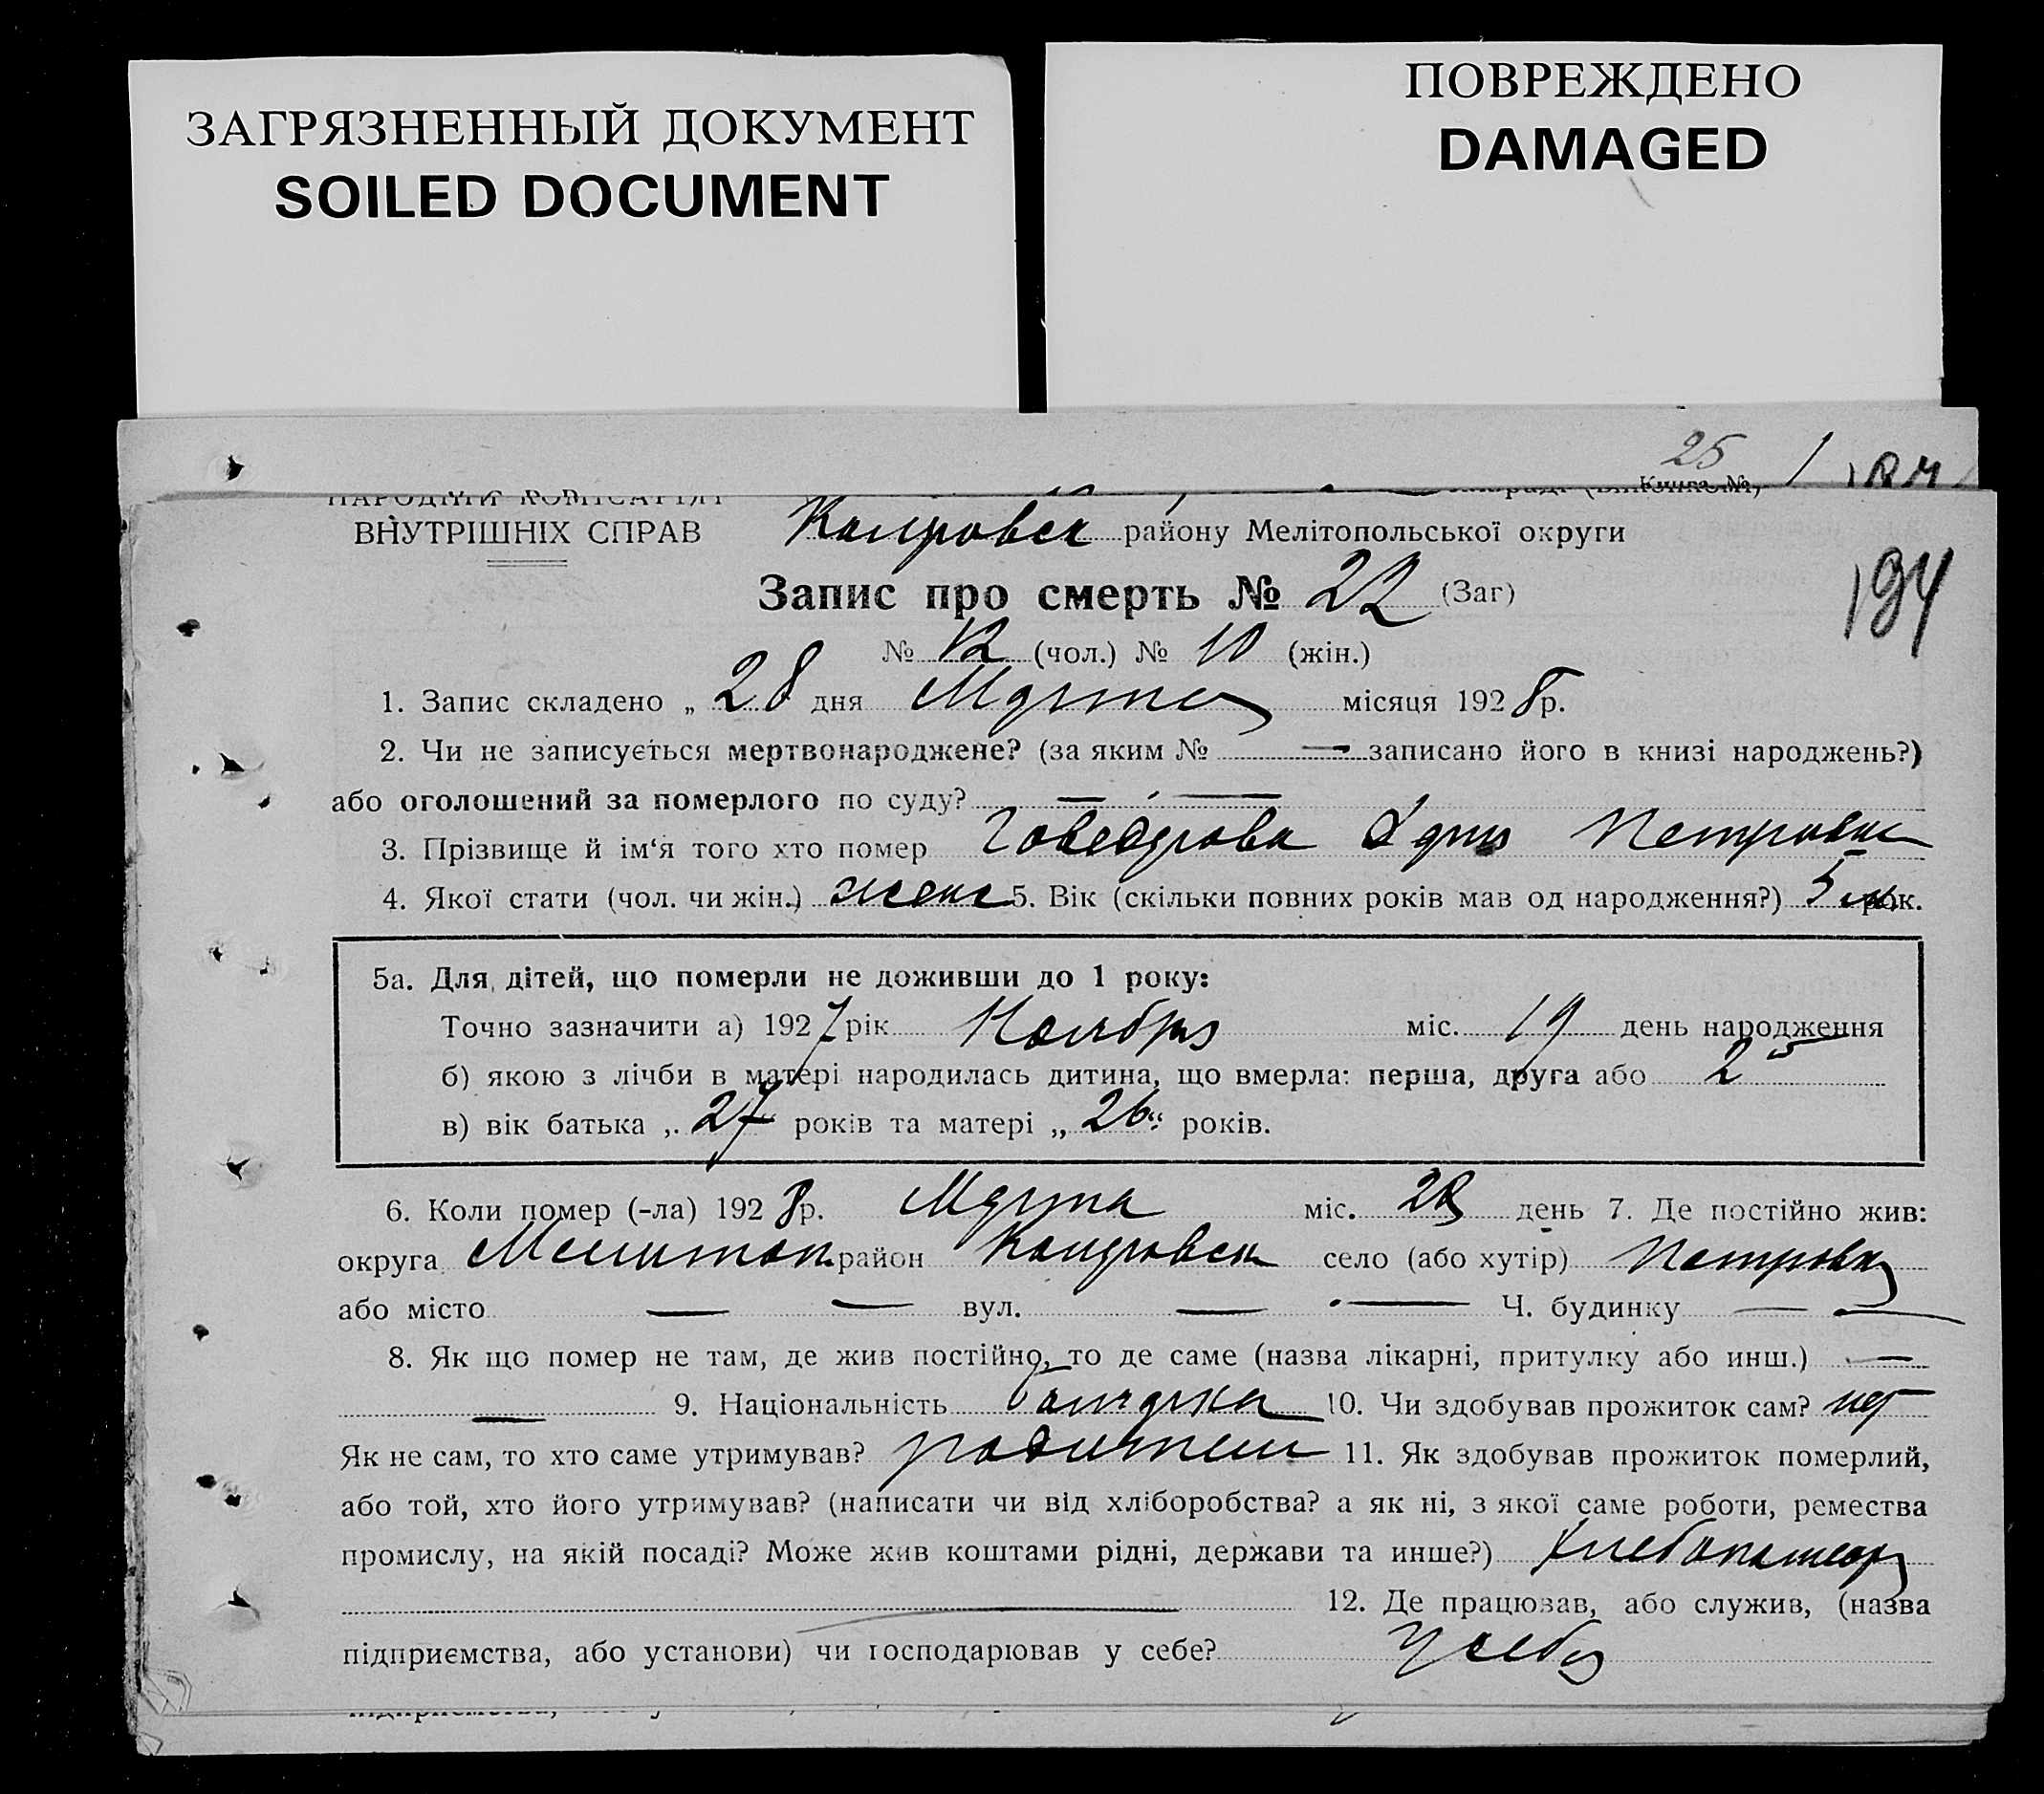 ЗАГРЯЗНЕННЫЙ ДОКУМЕНТ
SOILED DOCUMENT
ПОВРЕЖДЕНО
DAMAGED
25
Книга №
ВНУТРІШНІХ СПРАВ
району Мелітопольської округи
194
Запис про смерть № 22 (Заг)
№ 12 (чол.) № 10 (жін.)
1. Запис складено „ 28 дня Марта місяця 1928 р.
2. Чи не записується мертвонароджене? (за яким № — записано його в книзі народжень?)
або оголошений за померлого по суду? — —
3. Прізвище й ім‘я того хто помер Петровна
4. Якої стати (чол. чи жін.) женс 5. Вік (скільки повних років мав од народження?) 5 м. рок.
5а. Для дітей, що померли не доживши до 1 року:
Точно зазначити а) 1927 рік Ноября міс. 19 день народження
б) якою з лічби в матері народилась дитина, що вмерла: перша, друга або 2
в) вік батька „ 27 років та матері „ 26 “ років.
6. Коли помер (-ла) 1928 р. Марта міс. 28 день 7. Де постійно жив:
округа Мелитоп. район село (або хутір) Петровка
або місто — — вул. — — Ч. будинку — —
8. Як що помер не там, де жив постійно, то де саме (назва лікарні, притулку або инш.) —
— 9. Національність болгарка 10. Чи здобував прожиток сам? нет
Як не сам, то хто саме утримував? родители 11. Як здобував прожиток померлий,
або той, хто його утримував? (написати чи від хліборобства? а як ні, з якої саме роботи, ремества
промислу, на якій посаді? Може жив коштами рідні, держави та инше?) хлебопашеср
12. Де працював, або служив, (назва
підприємства, або установи) чи господарював у себе? у себя